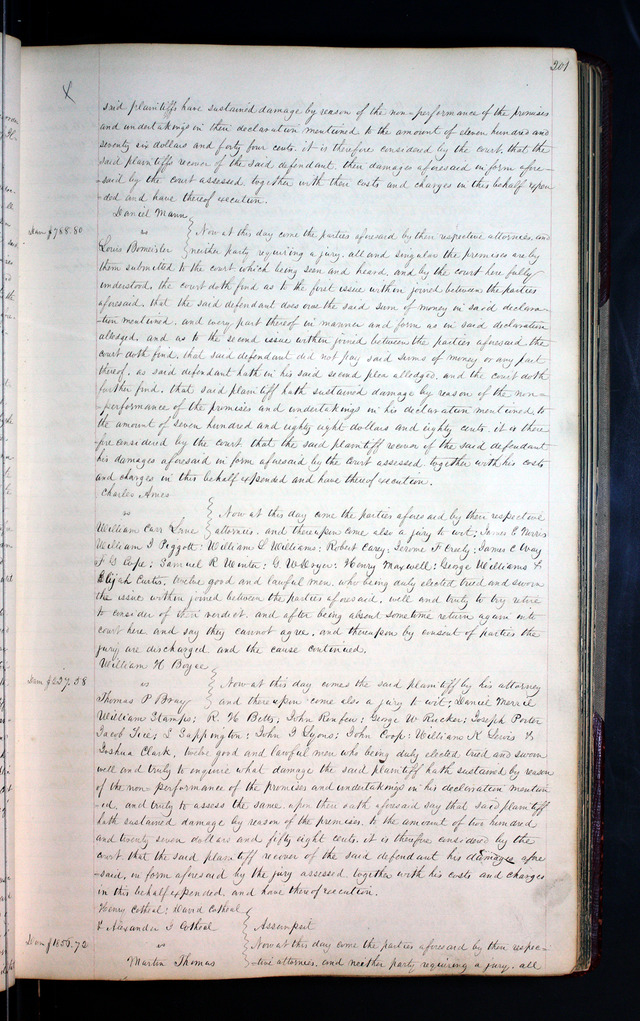 201
said plaintiffs have sustained damage by reason of the non-performance of the premises
and undertakings in their declaration mentioned to the amount of eleven hundred and
seventy six dollars and forty four cents. it is therefore considered by the court, that the
said plaintiffs recover of the said defendant, their damages aforesaid in form afore-
-said by the court assessed, together with their costs and charges in this behalf expen
-ded and have thereof execution.
Daniel Mann
Dam $788.80
vs
Now at this day come the parties aforesaid by their respective attornies, and
Louis Bomeisler neither party requiring a jury, all and singular the premises are by
them submitted to the court which being seen and heard, and by the court here fully
understood, the court doth find as to the first issue within joined between the parties
aforesaid, that the said defendant does owe the said sum of money in said declara-
-tion mentioned, and every part thereof in manner and form as in said declaration
alledged, and as to the second issue within joined between the parties aforesaid the
court doth find, that said defendant did not pay said sums of money or any part
thereof, as said defendant hath in his said second plea alledged, and the court doth
further find, that said plaintiff hath sustained damage by reason of the non-
-performance of the premises and undertakings in his declaration mentioned, to
the amount of seven hundred and eighty eight dollars and eighty cents. it is there
-fore considered by the court, that the said plaintiff recover of the said defendant
his damages aforesaid in form aforesaid by the court assessed, together with his costs
and charges in this behalf expended and have thereof execution.
Charles Ames
vs
Now at this day come the parties aforesaid by their respective
William Carr Lane attornies, and thereupon come also a jury to wit; James E
William J Piggott; William L Williams; Robert Carey; Jerome F Creely; James C Way
Pope; Samuel R Winter; G. W. Dryer; Henry Maxwell; George Williams &
Elijah Curtis, twelve good and lawful men, who being duly elected tried and sworn
the issue within joined between the parties aforesaid, well and truly to try retire
to consider of their verdict, and after being absent sometime return again into
court here and say they cannot agree, and thereupon by consent of parties the
jury are discharged and the cause continued.
William H Boyce
Dam $227.58
vs
Now at this day comes the said plaintiff by his attorney
Thomas P Bray and thereupon come also a jury to wit; Daniel
William Stamps; R. H Betts; John Renfew; George W Rucker; Joseph Porter
Jacob Tice; L Sappington; John J Lyons; John Coop; William K Lewis &
Joshua Clark, twelve good and lawful men who being duly elected tried and sworn
well and truly to enquire what damage the said plaintiff hath sustained by reason
of the non-performance of the promises and undertakings in his declaration mention
-ed, and truly to assess the same, upon their oath aforesaid say that said plaintiff
hath sustained damage by reason of the premises, to the amount of two hundred
and twenty seven dollars and fifty eight cents. it is therefore considered by the
court that the said plaintiff recover of the said defendant his damages afore
-said, in form aforesaid by the jury assessed together with his costs and charges
in this behalf expended, and have thereof execution.
Henry Cotheal; David Cotheal
& Alexander I Cotheal Assumpsit
Dam $1656.72
vs
Now at this day come the parties aforesaid by their respec-
Martin Thomas -tive attornies, and neither party requiring a jury, all